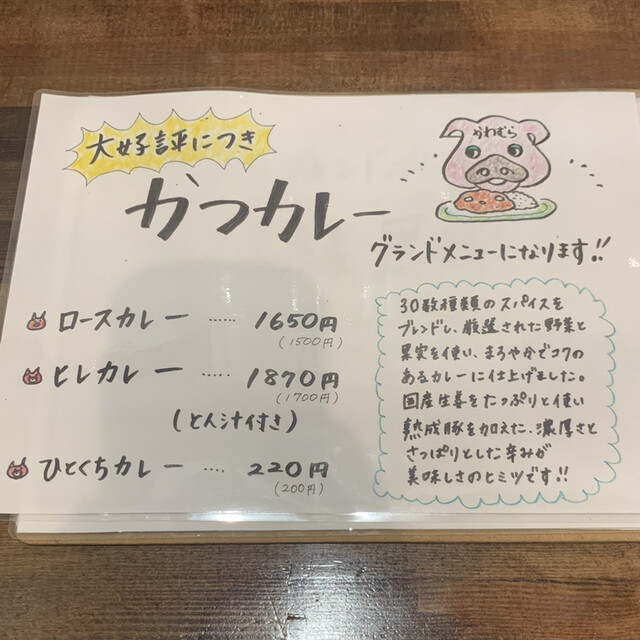 大好評につき
かわむら
かつカレー
グランドメニューになります!!
ロースカレー ..... 1650円
(1500円)
ヒレカレー ..... 1870円
(1700円)
(とん汁付き)
ひとくちカレー .... 220円
(200円)
30数種類のスパイスを
ブレンドし、厳選された野菜と
果実を使い、まろやかでコクの
あるカレーに仕上げました。
国産生姜をたっぷりと使い
熟成豚を加えた、濃厚さと
さっぱりとした辛みが
美味しさのヒミツです!!